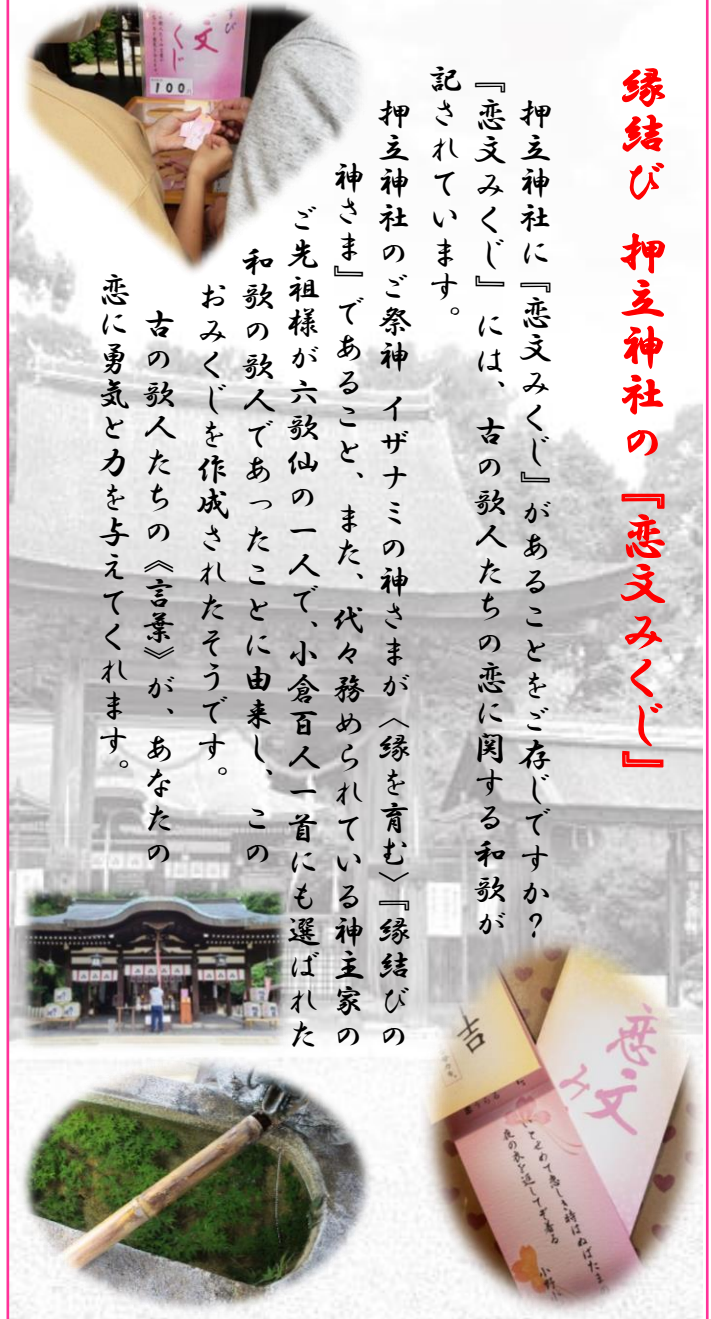 縁結び 押立神社の『恋文みくじ』
押立神社に『恋文みくじ』があることをご存じですか？
『恋文みくじ』には、古の歌人たちの恋に関する和歌が
記されています。
押立神社のご祭神 イザナミの神さまが〈縁を育む〉『縁結びの
神さま』であること、また、代々務められている神主家の
ご先祖様が六歌仙の一人で、小倉百人一首にも選ばれた
和歌の歌人であったことに由来し、この
おみくじを作成されたそうです。
古の歌人たちの《言葉》が、あなたの
恋に勇気と力を与えてくれます。
文
くじ
100
恋文み
吉
とせめて恋しき時はぬばたまの
夜の衣を返してぞ着る
小野